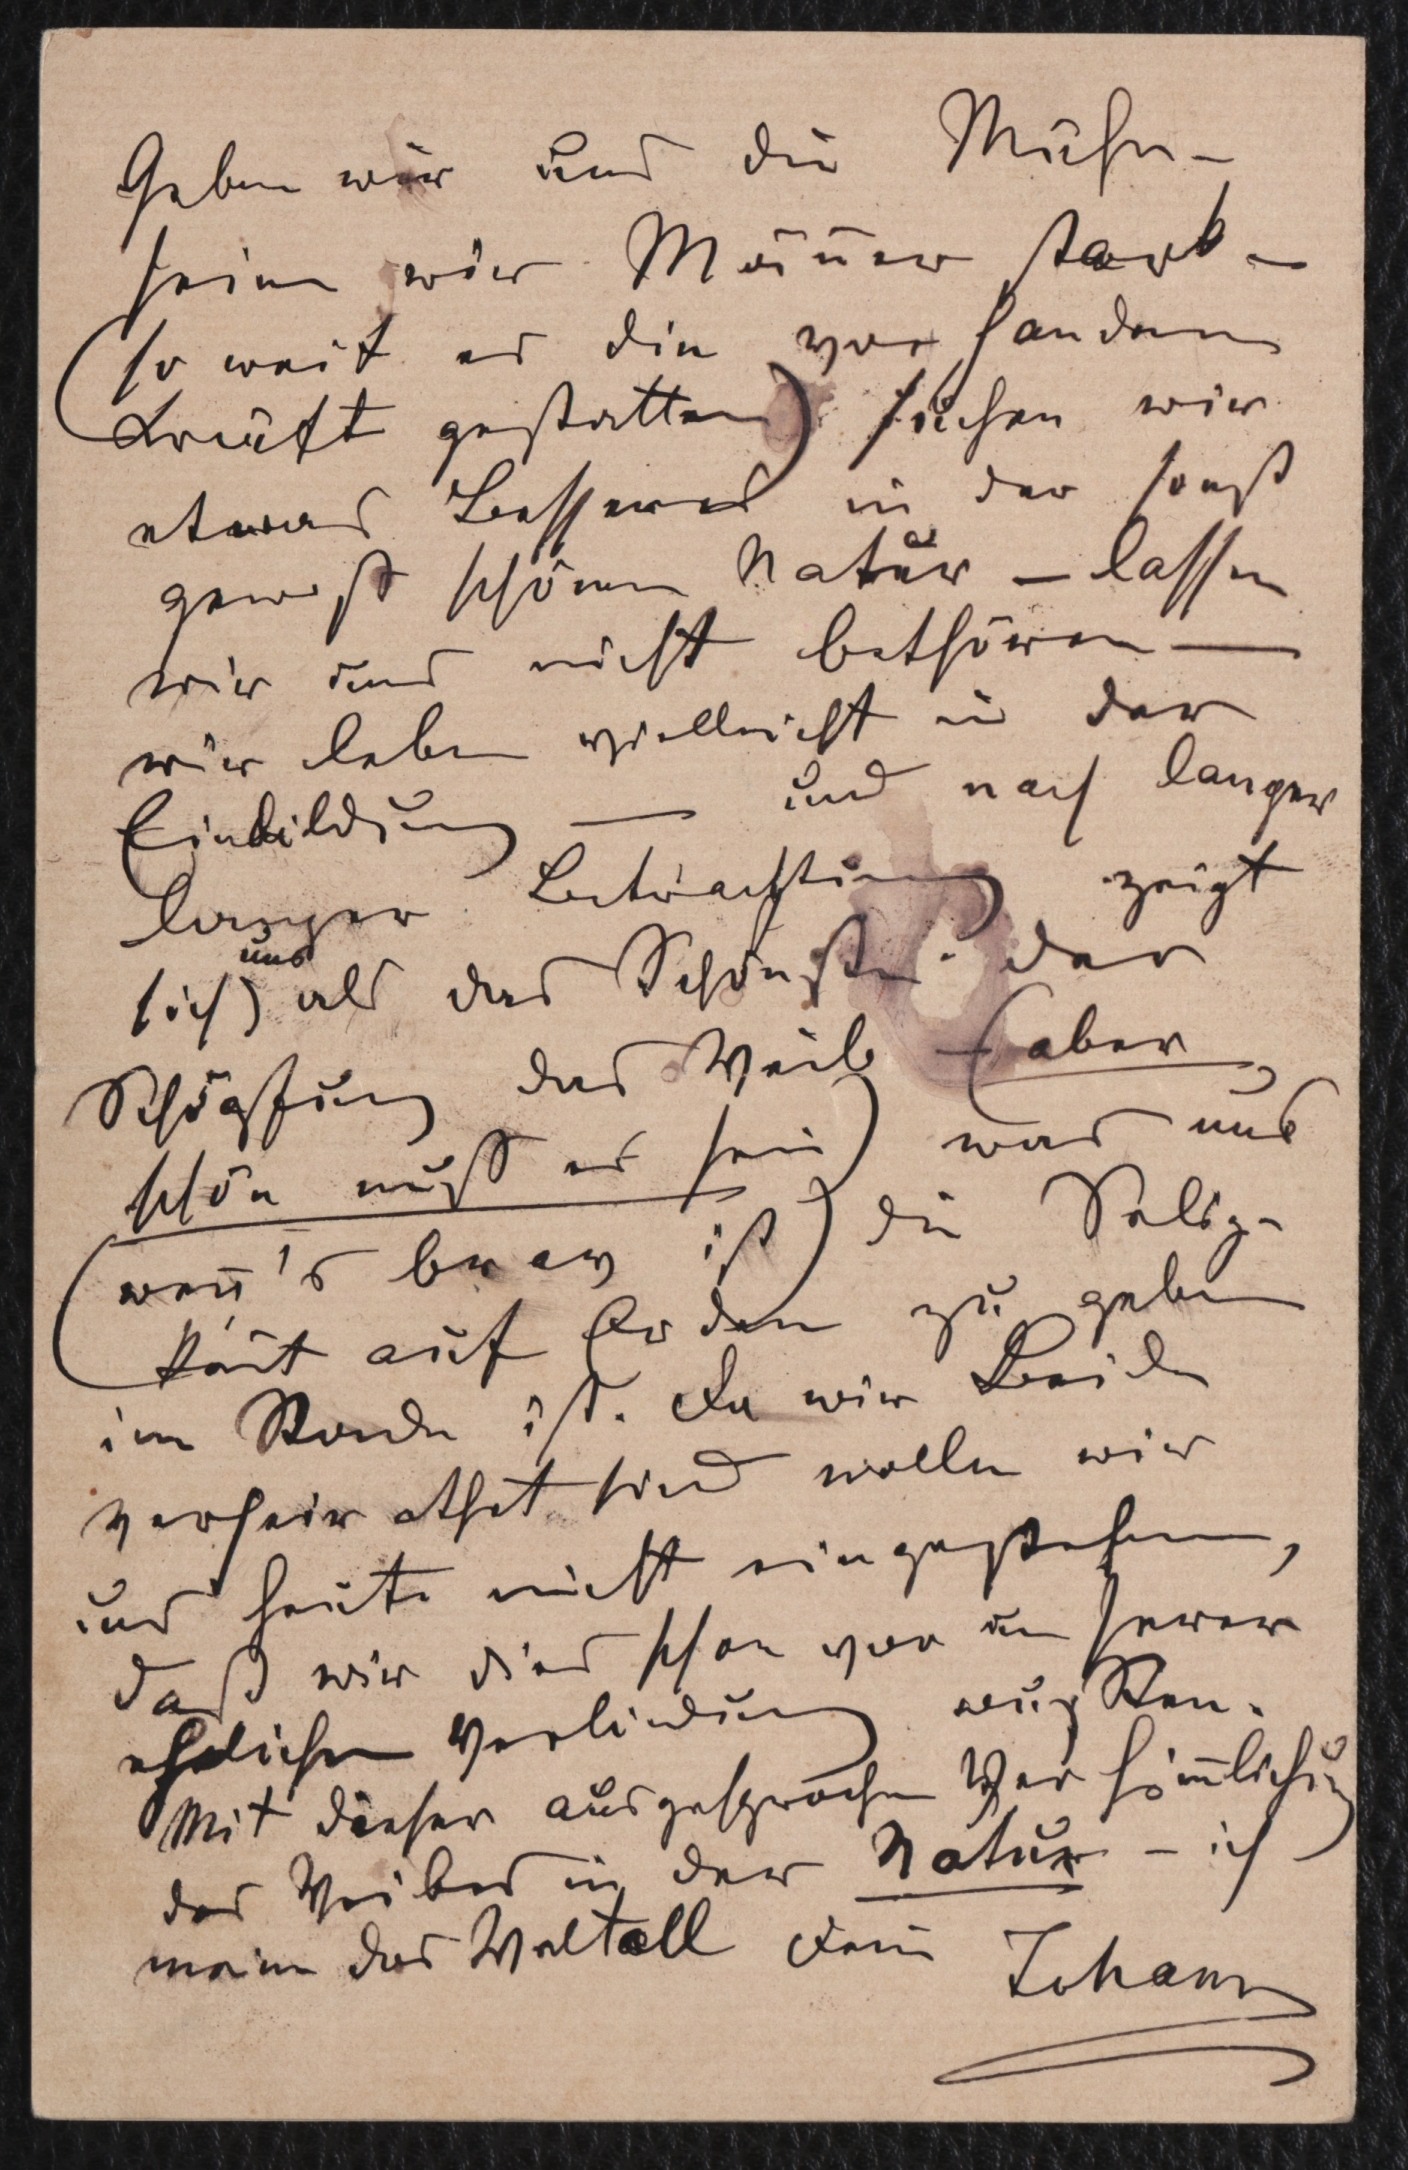 Geben wir uns die Mühe –
seien wir Männer stark –
(so weit es die vorhandenen
Kräfte gestatten) suchen wir
etwas Besseres in der sonst
gewiß schönen Natur – lassen
wir uns nicht bethören –
wir leben vielleicht in der
Einbildung – und nach langer
langer Betrachtung zeigt
sich) uns als das Schönste der
Schöpfung das Weib – (aber
schön muß es sein) was uns
(wenn's brav ist) die Selig-
keit auf Erden zu geben
im Stande ist. Da wir Beide
verheirathet sind wollen wir
uns heute nicht eingestehen,
daß wir dies schon vor unserer
ehelichen Verbindung wußten.
Mit dieser ausgesprochen Verhimmlichung
des Weibes in der Natur – ich
meine das Weltall Dein Johann